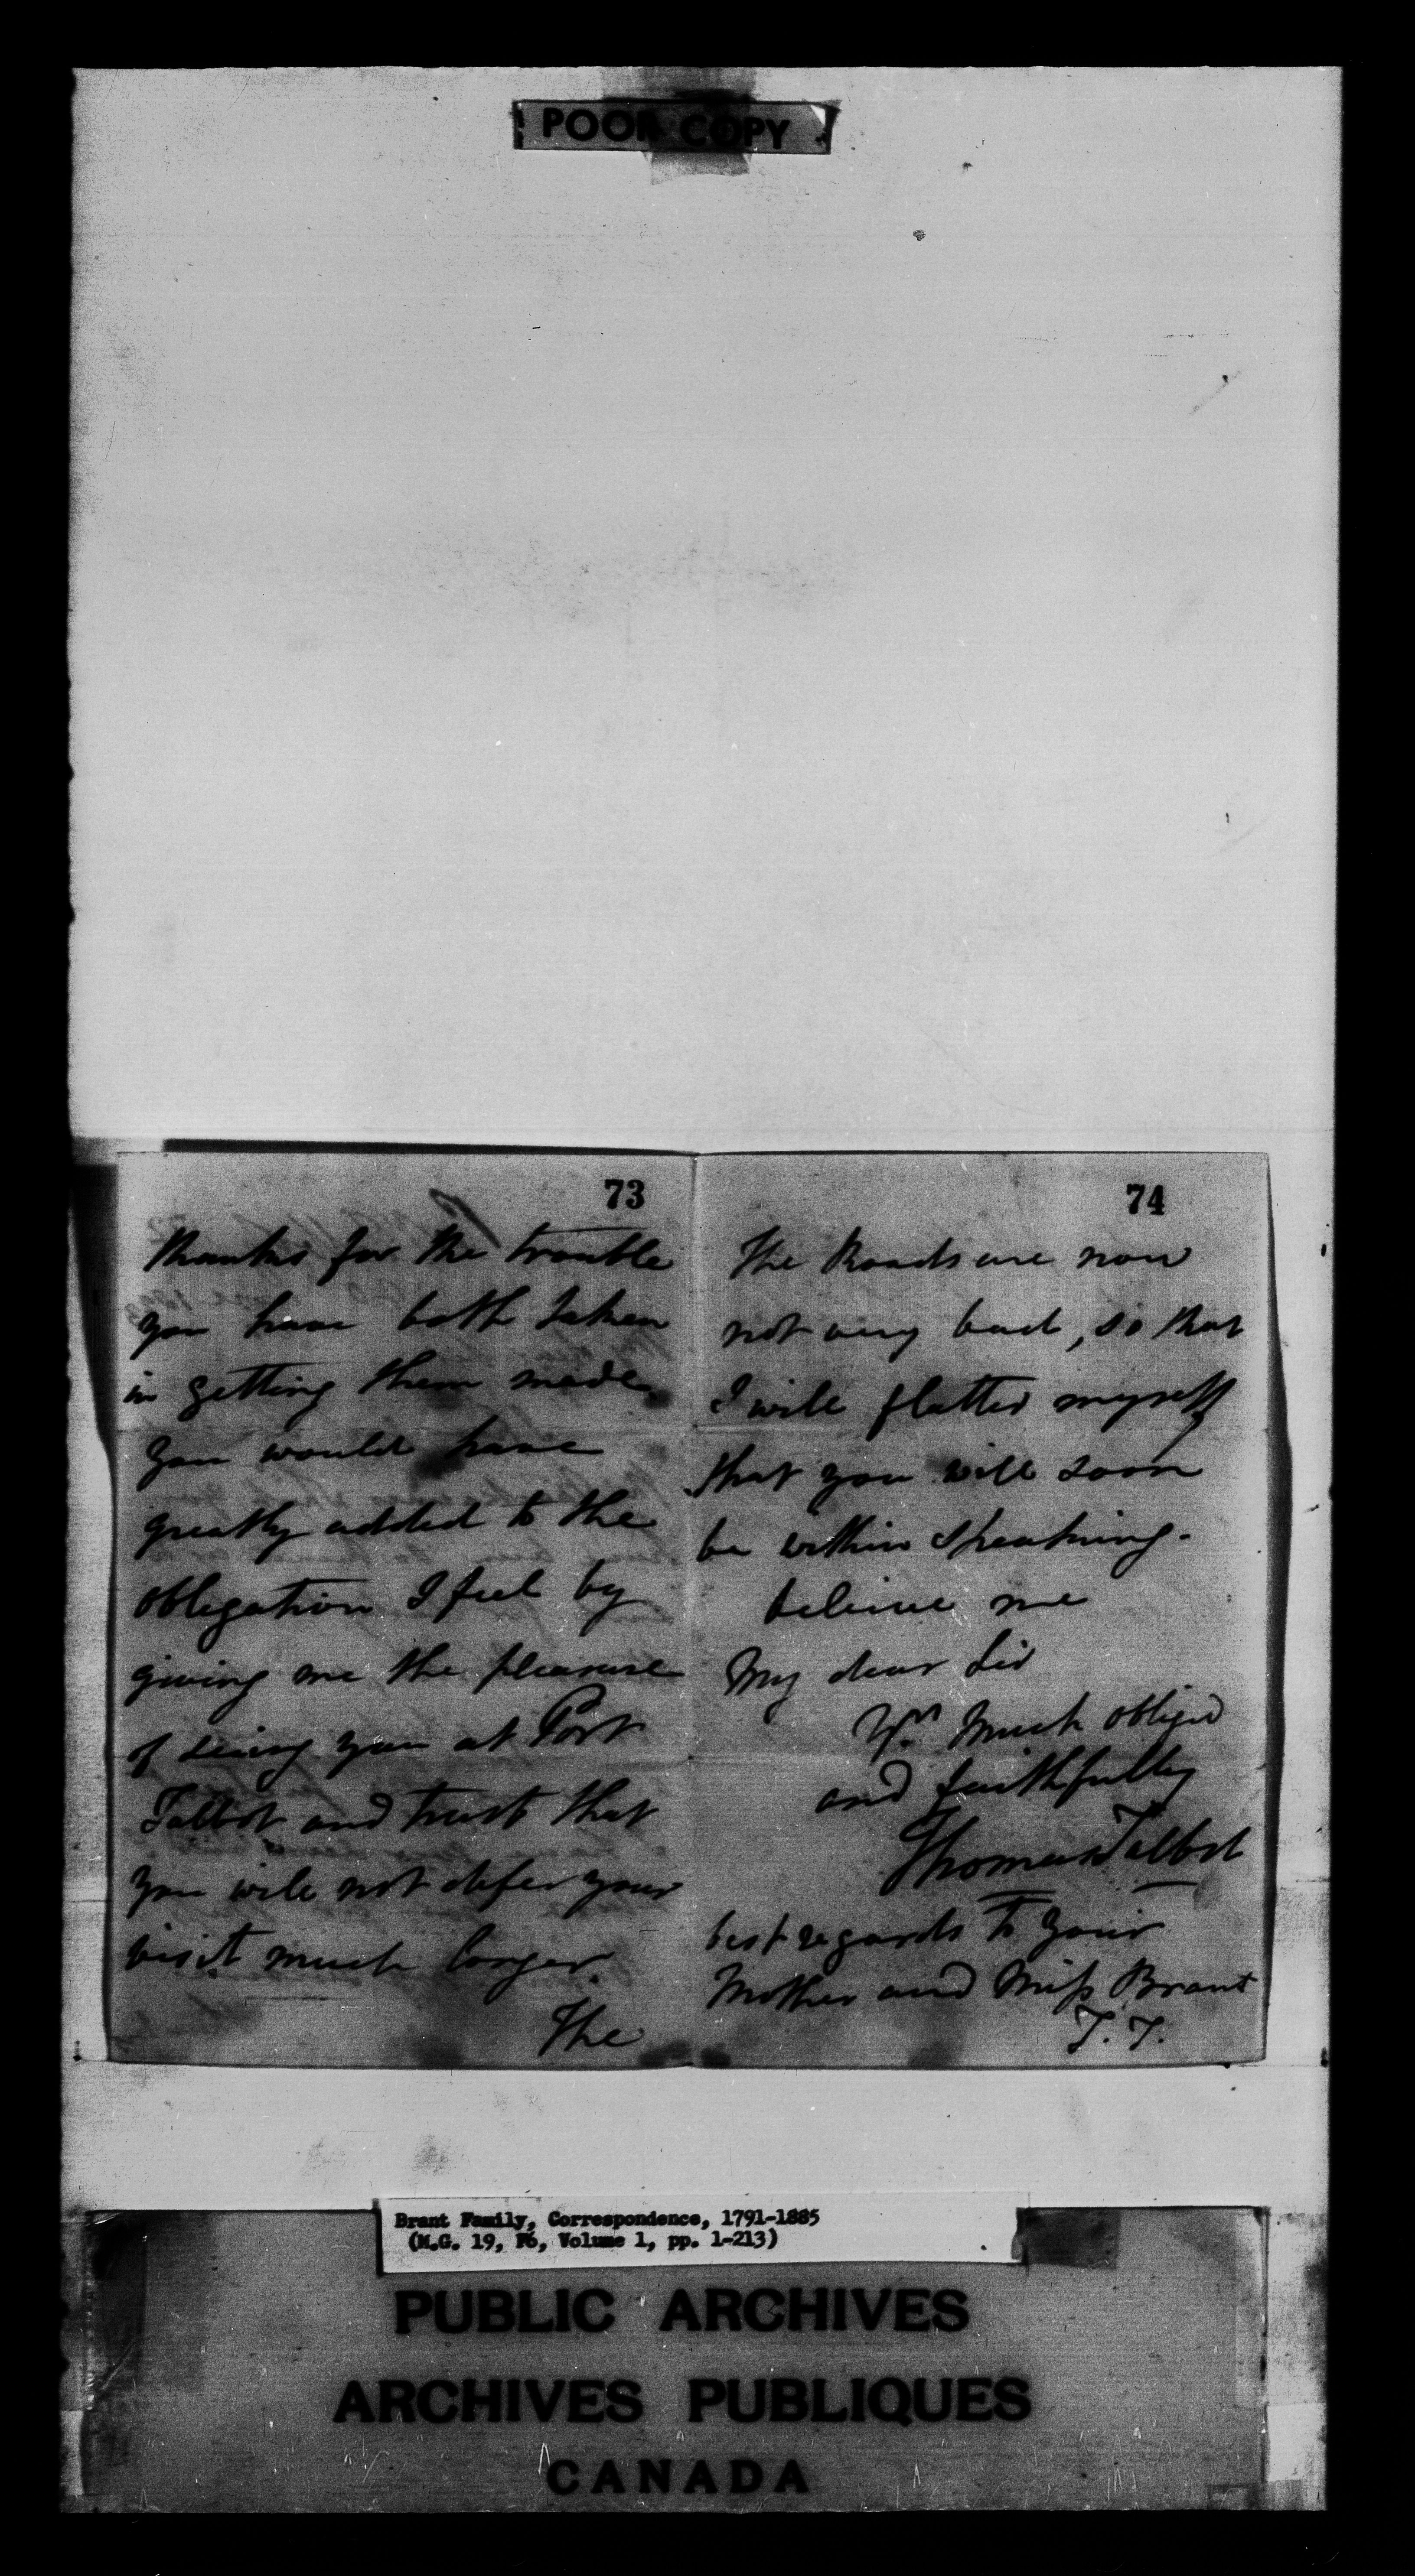 POOR COPY
73
thanks for the trouble
you have both taken
in getting them made,
you would have
greatly added to the
obligation I feel by
giving me the pleasure
of seeing you at Port
Talbot and trust that
you will not defer your
visit much longer.
The
74
The Roads are now
not very bad, so that
I will flatter myself
that you will soon
be within speaking.
beleive me
My dear Sir
Yrs. much obliged
and faithfully
Thomas Talbot
best regards to your
Mother and Miss Brant
T. T.
Brant Family, Correspondence, 1791-1885
(M.G. 19, F6, Volume 1, pp. 1-213)
PUBLIC ARCHIVES
ARCHIVES PUBLIQUES
CANADA